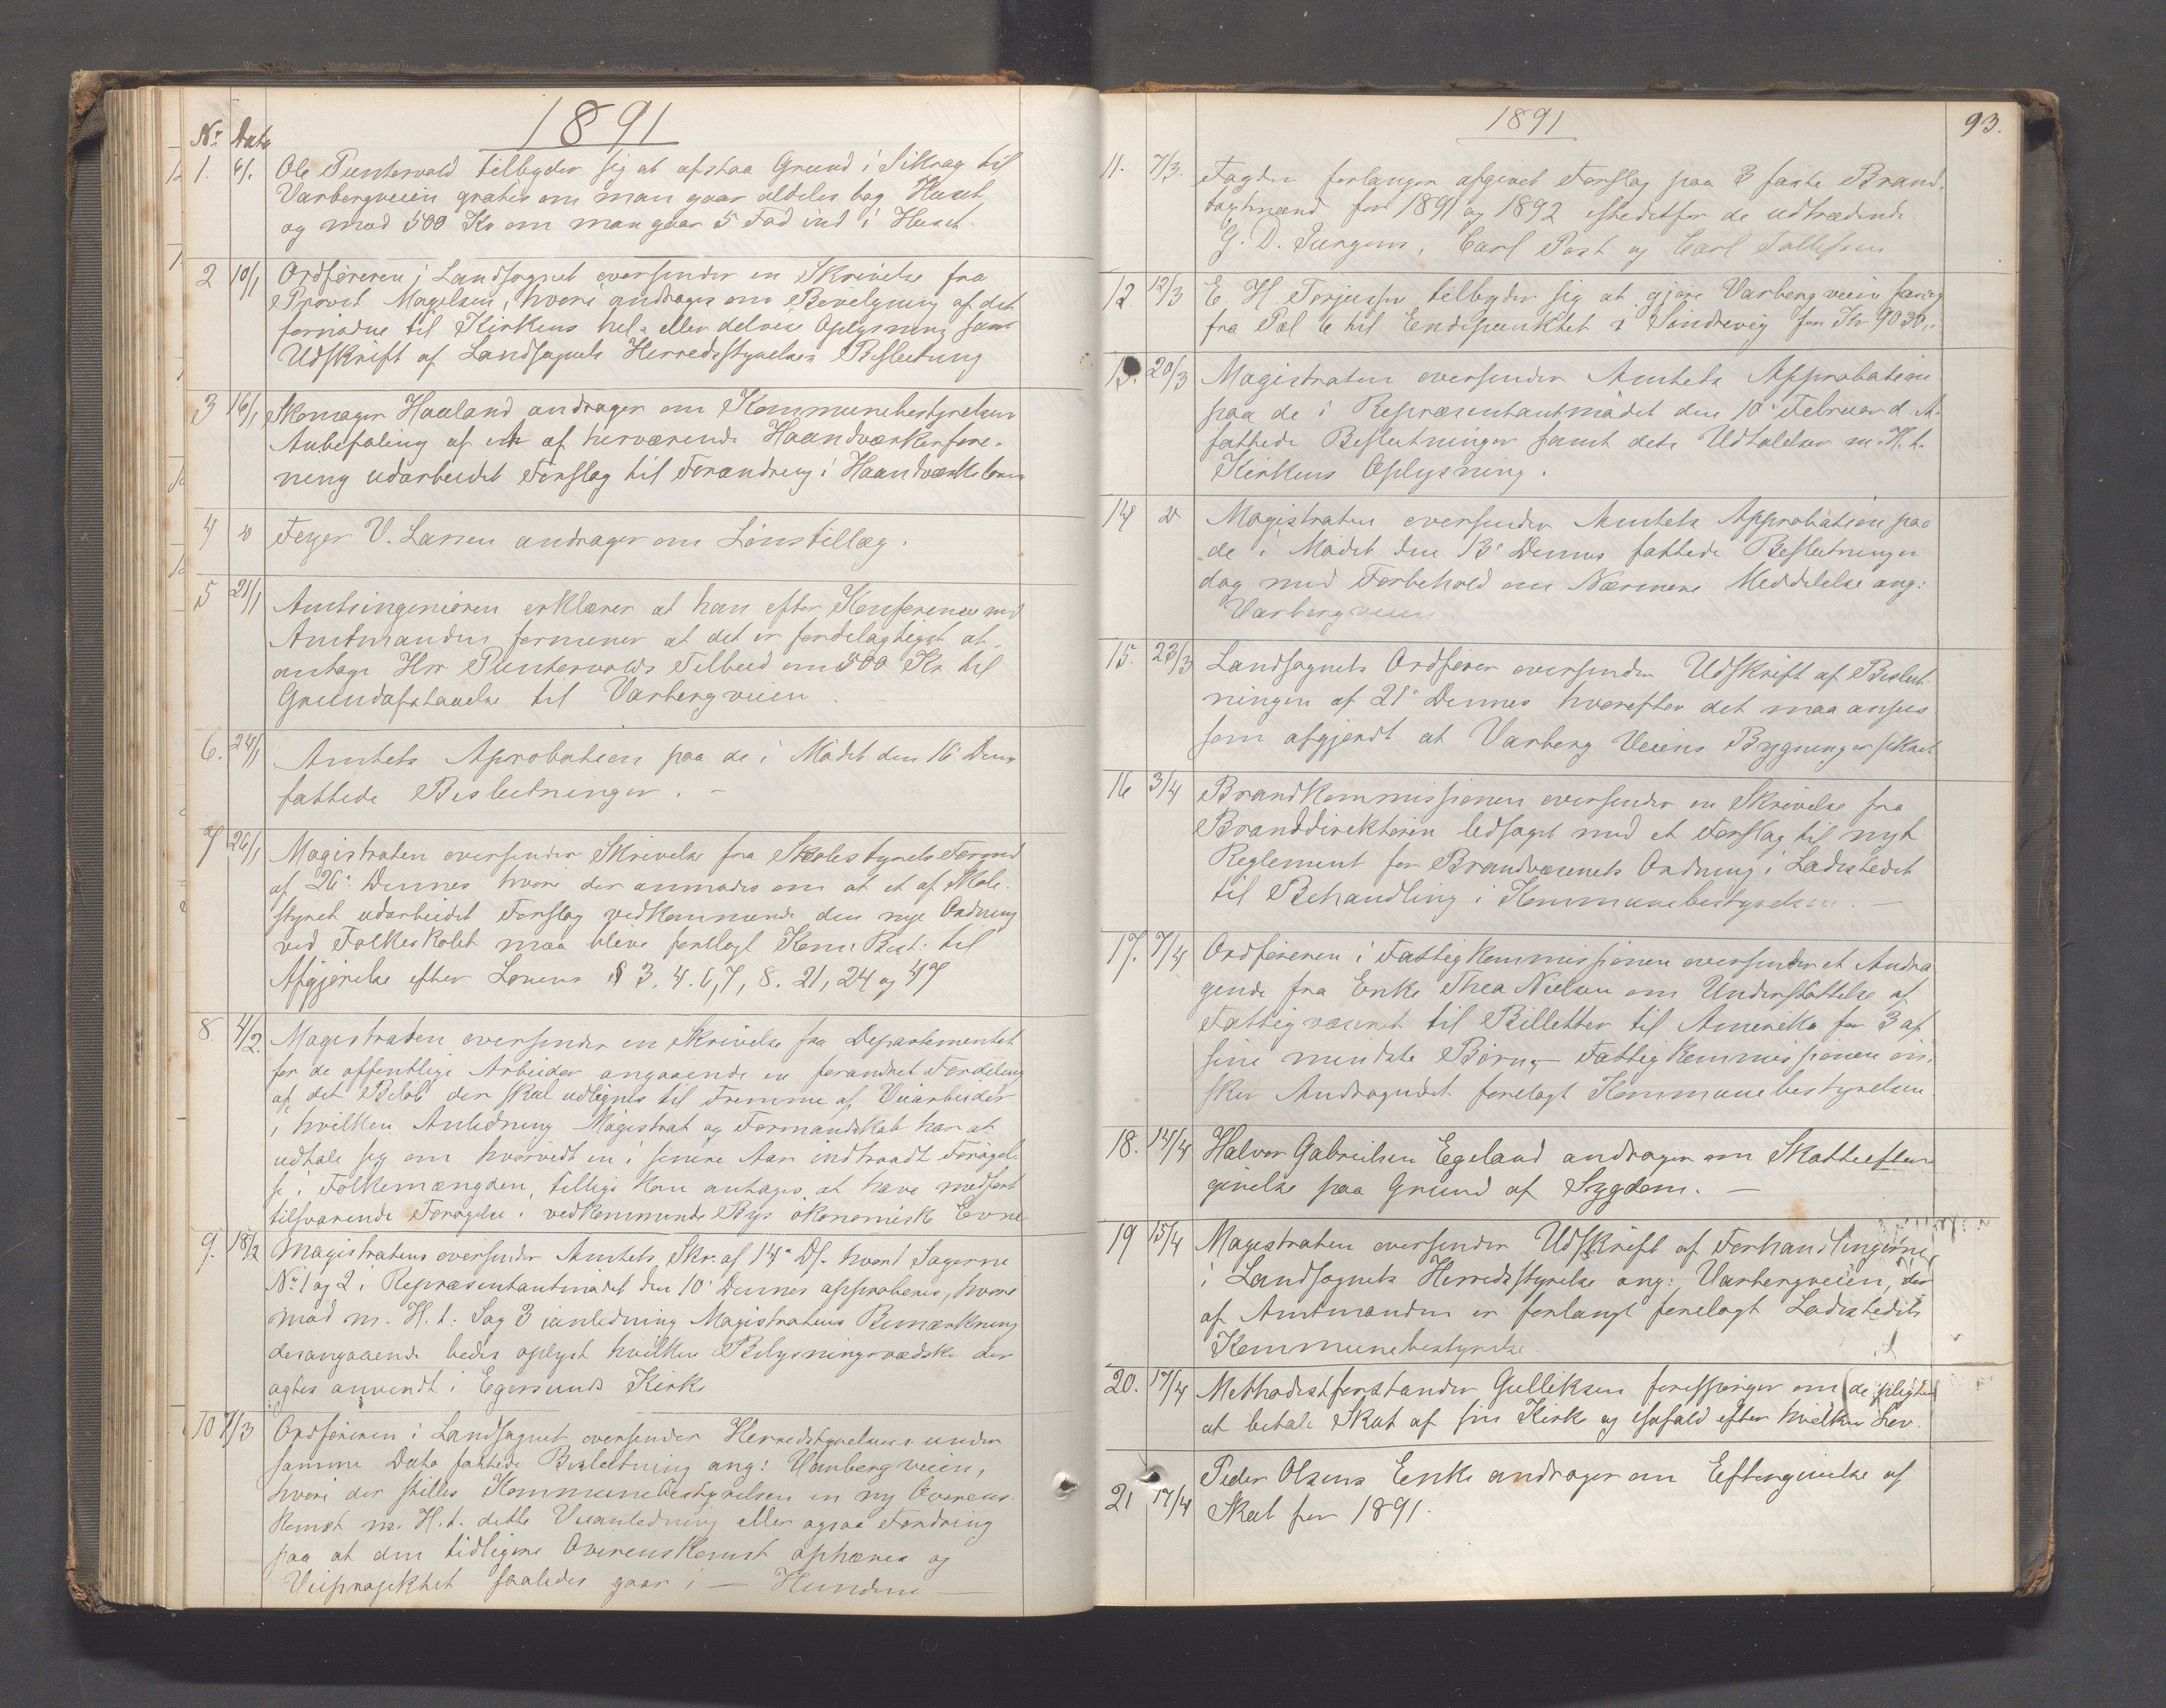 1891
No Dato
1. 6/1 Ole Puntervold tilbyder sig at afstaa Grund i Sikvag til
Varbergveien gratis om man gaar aldeles bag Huset
og mod 500 Kr om man gaar 5 Fod ind i Huset.
2 10/1 Ordføreren i Landsognet oversender en Skrivelse fra
Provst Magelsen, hvori andrages om Bevilgning af det
fornødne til Kirkens hel- eller delvise Oplysning samt
Udskrift af Landsognets Herredsstyrelses Beslutning
3 16/1 Skomager Haaland andrager om Kommunebestyrelsens
Anbefaling af et af herværende Haandværkerfore-
ning udarbeidet Forslag til Forandring i Haandværksloven
4 " Feyer V. Larsen andrager om Lønstillæg.
5 21/1 Amtsingeniøren erklærer at han efter Konference med
Amtmanden formener at det er fordelagtigst at
antage Hrr Puntervolds Tilbud om 500 Kr til
Grundafstaaelse til Varbergveien.
6. 24/1 Amtets Aprobation paa de i Mødet den 16' Dens
fattede Beslutninger. -
7 26/1 Magistraten oversender Skrivelse fra Skolestyrets Formd
af 26' Dennes hvori der anmodes om at et af Skole-
styret udarbeidet Forslag vedkommende den nye Ordning
ved Folkeskolet maa blive forelagt Kom: Best: til
Afgjørelse efter Lovens § 3. 4. 6, 7, 8. 21, 24 og 47
8. 4/2. Magistraten oversender en Skrivelse fra Departementet
for de offentlige Arbeider angaaende en forandret Fordeling
af det Beløb der skal udlignes til Fremme af Veiarbeider
i hvilken Anledning Magistrat og Formandskab har at
udtale sig om hvorvidt en i senere Aar indtraadt Forøgel-
se i Folkemængden, tillige kan antages at have medført
tilsvarende Forøgelse i vedkommende Bys økonomiske Evne
9. 18/2 Magistraten oversender Amtets Skr. af 14' Ds. hvori Sagerne
No 1 og 2 i Repræsentantmødet den 10' Dennes approberes, hvori
mod m. H. t: Sag 3 ianledning Magistratens Bemærkning
desangaaende bedes oplyst hvilken Belysningsvædske der
agtes anvendt i Egersunds Kirke
10 7/3 Ordføreren i Landsognet oversender Herredstyrelsens under
samme Dato fattede Beslutning ang: Varbergveien,
hvori der stilles Kommunebestyrelsen en ny Overens-
komst m. H. t. dette Veianledning eller ogsaa Fordring
paa at den tidligere Overenskomst ophæves og
Veiprojektet saaledes gaar i — Hundene —
1891
93.
11. 7/3. Fogden forlanger afgivet Forslag paa 3 faste Brand-
togtmænd for 1891 og 1892 istedetfor de udtrædende
G. D. Jurgens, Carl Post og Carl Tollefsen
12. 12/3 E. H. Terjesen tilbyder sig at gjøre Varbergveien færdig
fra Pæl 6 til Endepunktet i Sindrevig for Kr 9030,-
13. 20/3 Magistraten oversender Amtets Approbation
paa de i Repræsentantmødet den 10' Februar d. A.
fattede Beslutninger samt dets Udtalelser m. H. t.
Kirkens Oplysning.
14 " Magistraten oversender Amtets Approbation paa
de i Mødet den 13' Dennes fattede Beslutninger
dog med Forbehold om Nærmere Meddelelse ang:
Varbergveien
15. 23/3 Landsognets Ordfører oversender Udskrift af Beslut-
ningen af 21' Dennes hvorefter det maa ansees
som afgjordt at Varberg Veiens Bygning er sikret
16 3/4 Brandkommissionen oversender en Skrivelse fra
Branddirektøren ledsaget med et Forslag til nyt
Reglement for Brandvæsenets Ordning i Ladestedet
til Behandling i Kommunebestyrelsen. —
17. 7/4 Ordføreren i Fattigkommissionen oversender et Andra-
gende fra Enke Thea Nielsen om Understøttelse af
Fattigvæsenet til Billetter til Amerika for 3 af
sine mindste Børn, — Fattigkommissionen øn-
sker Andragendet forelagt Kommunebestyrelsen.
18. 14/4 Halvor Gabrielsen Egeland andrager om Skatteefter-
givelse paa Grund af Sygdom. —
19 15/4 Magistraten oversender Udskrift af Forhandlingerne
i Landsognets Herredsstyrelse ang: Varbergveien, der
af Amtmanden er forlangt forelagt Ladestedets
Kommunebestyrelse.
20. 17/4 Methodistforstander Gulliksen forespørger om de pligter
at betale Skat af sin Kirke og isafald efter hvilken Lov.
21 17/4 Peder Olsens Enke andrager om Eftergivelse af
Skat for 1891.